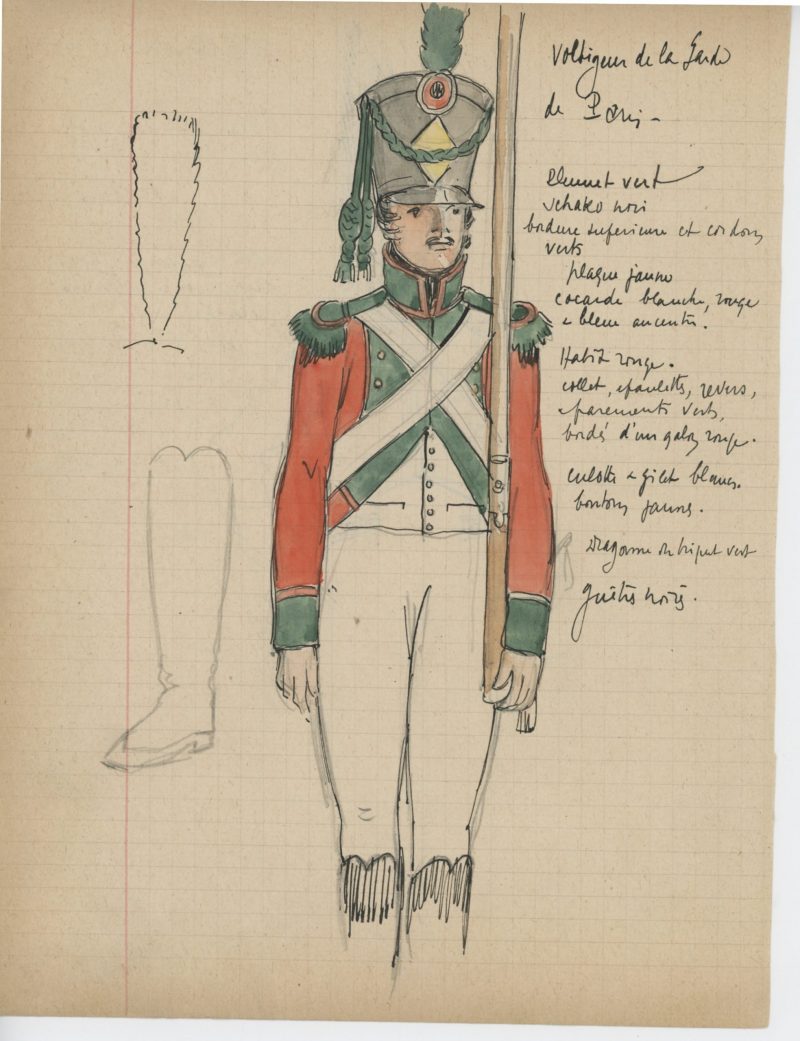 Voltigeur de la Garde
de Paris -
Plumet vert
schako noir
bordure superieure et cordons
verts
plaque jaune
cocarde blanche, rouge
& bleue au centre.
Habit rouge.
collet, epaulettes, revers,
& parements verts,
bordés d'un galon rouge.
culotte & gilet blancs.
boutons jaunes.
Dragonne du briquet vert
guêtres noires.